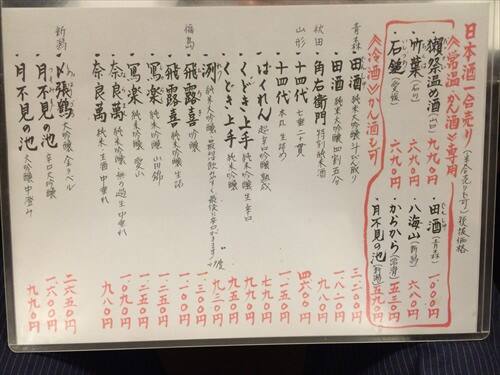 日本酒一合売り(半合売りも可)税抜価格
≪常温・かん酒≫専用
・獺祭温め酒(山口) 九九〇円
・竹葉(石川) 六九〇円
・石鎚(愛媛) 六九〇円
≪冷酒≫かん酒も可
・田酒(青森) 一、〇〇〇円
・八海山(新潟) 六八〇円
・からから(沼津) 五三〇円
・月不見の池(新潟) 五九〇円
青森
・田酒 純米大吟醸 斗びん取り 三、二〇〇円
・田酒 純米大吟醸 四割五分 一、八二〇円
秋田
・角右衛門 特別純米酒 八八〇円
山形
・十四代 七垂二十貫 四、六〇〇円
・十四代 本丸 生詰 一、一五〇円
・ばくれん 超辛口吟醸 七九〇円
・くどき上手 純米吟醸 生辛口 九九〇円
・くどき上手 純米大吟醸 九五〇円
・洌 純米大吟醸 九三〇円
福島
・飛露喜 純米大吟醸 一、三〇〇円
・飛露喜 純米吟醸 生詰 一、一〇〇円
・寫楽 純米吟醸 山田錦 一、二五〇円
・寫楽 純米吟醸 愛山 一、二五〇円
・奈良萬 純米吟醸 中垂れ 一、〇九〇円
・奈良萬 純米生酒 中垂れ 九八〇円
新潟
・〆張鶴 大吟醸 金ラベル 二、六五〇円
・月不見の池 大吟醸 一、六〇〇円
・月不見の池 大吟醸 中澄み 九九〇円